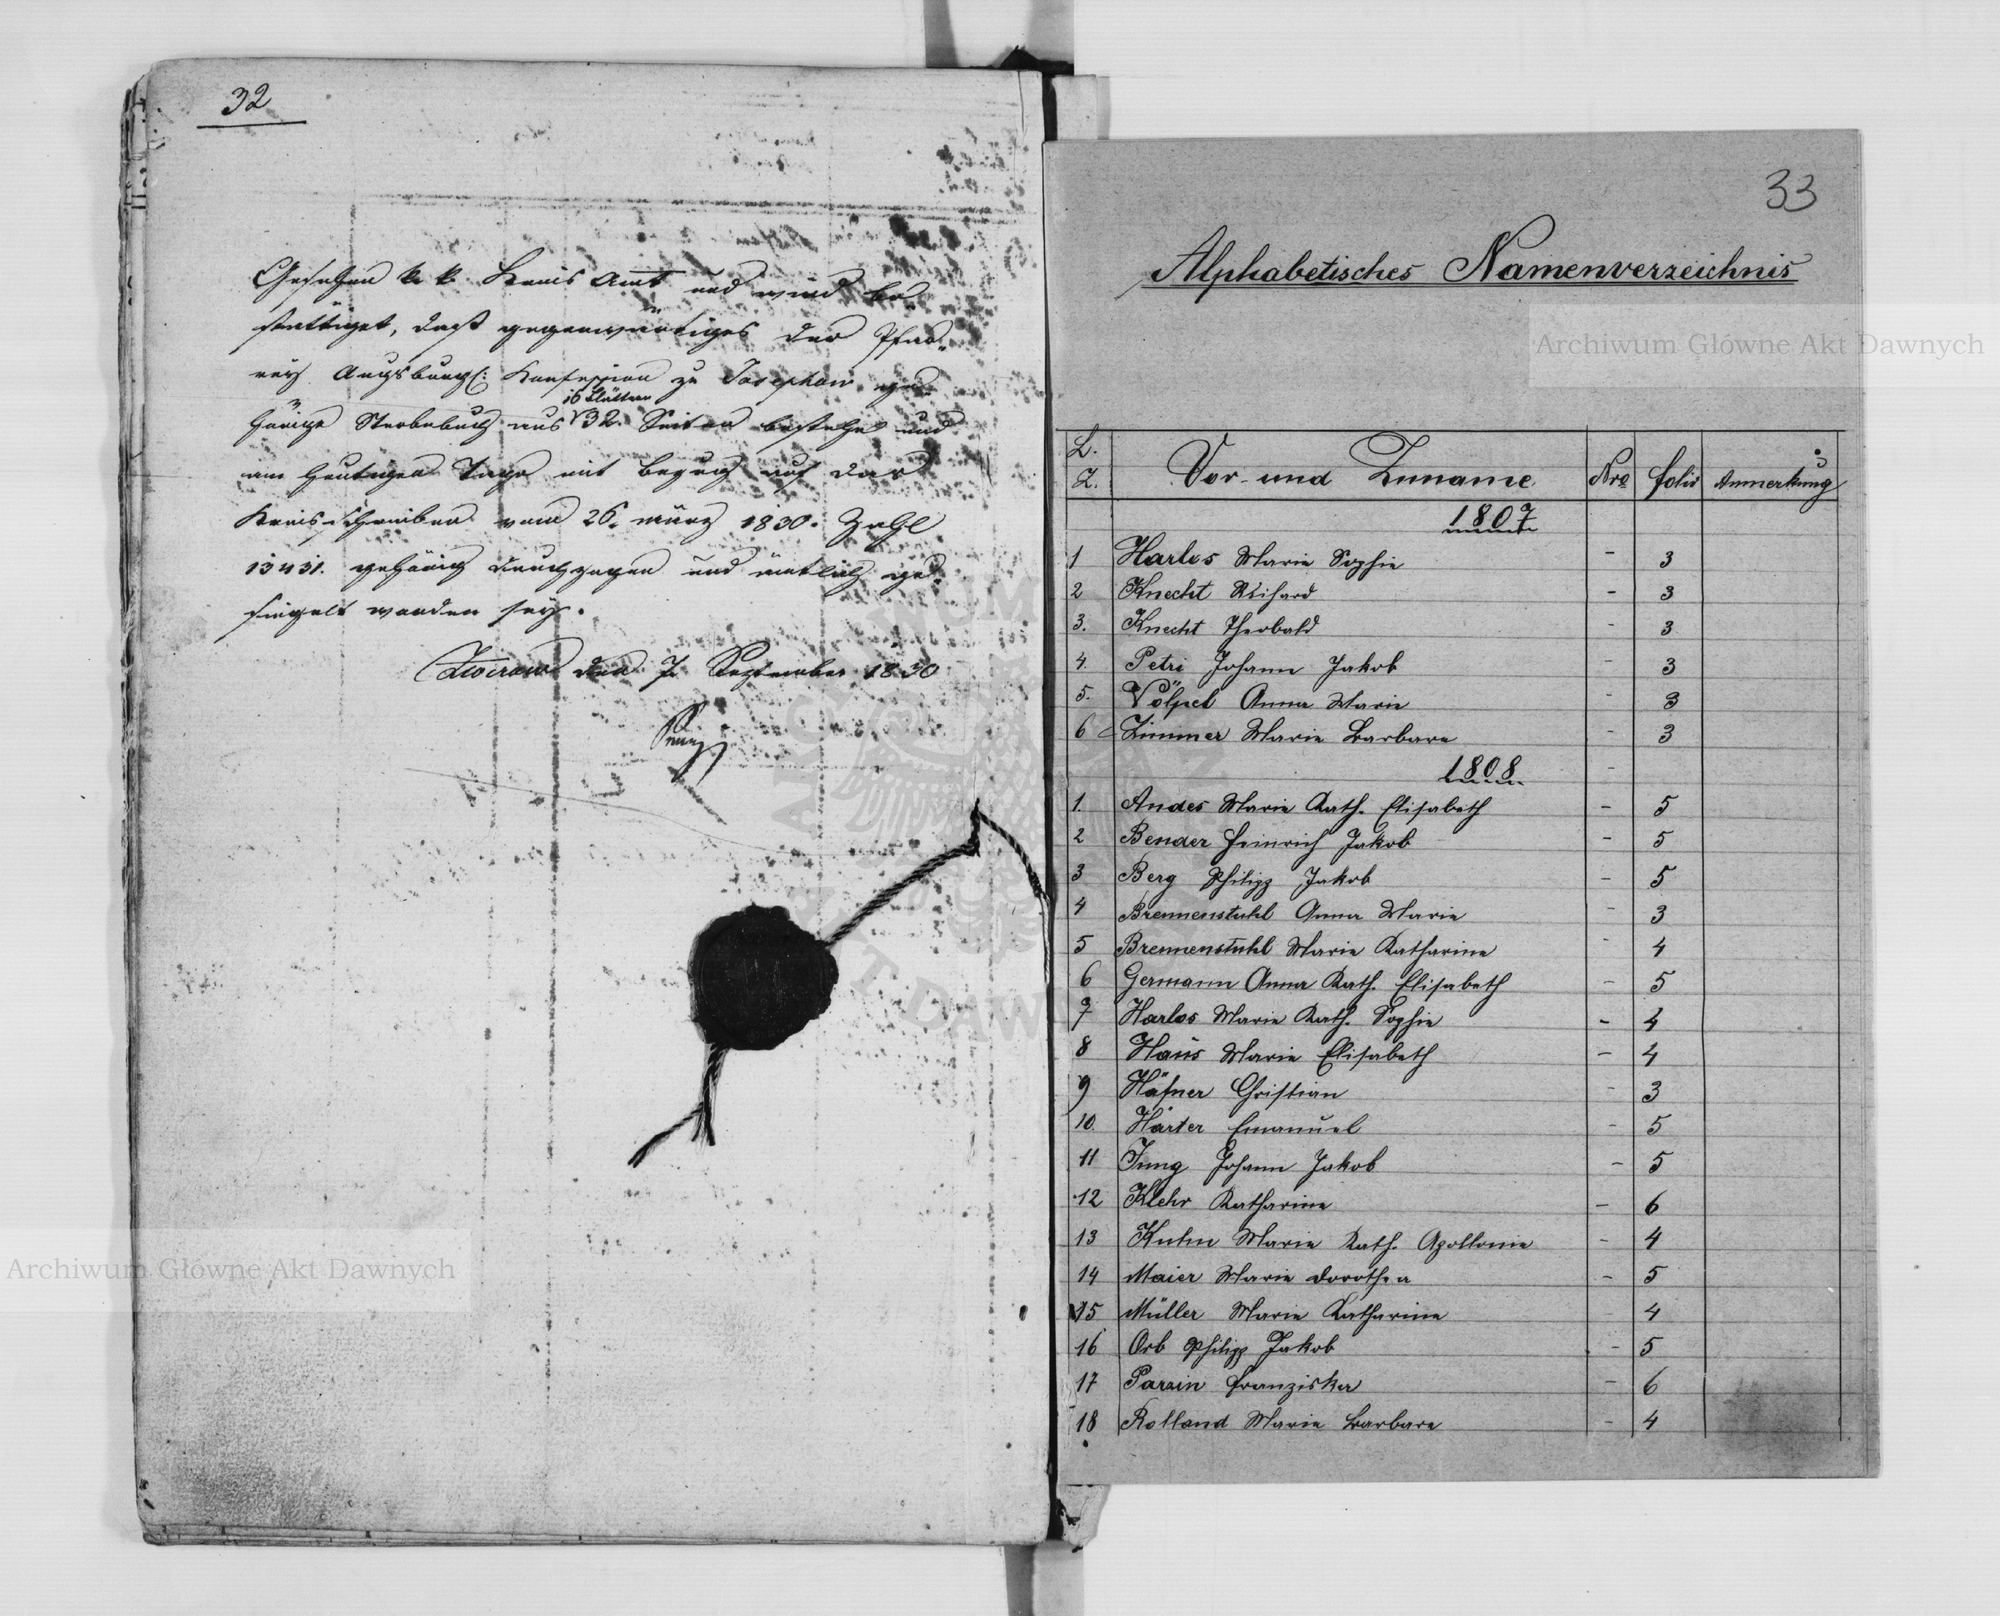 32
Gesehen k. k. Kreis Amt und wird be-
stättiget, daß gegenwärtiges der Pfar-
rey Augsburg: Konfession zu Josephow ge-
hörige Sterbebuch aus 16 Blättern 32. Seiten bestehe und
am heutigen Tage mit Bezug auf das
Kreisschreiben vom 26. März 1830. Zahl
13431. gehörig durchzogen und ämtlich ge-
siegelt worden sey.
den 7. September 1830
33
Alphabetisches Namenverzeichnis
L. Z. Vor- und Zuname Nro folio Anmerkung
1807
1 Harlos Marie Sophie - 3
2 Knecht Richard - 3
3. Knecht Theobald - 3
4. Petri Johann Jakob - 3
5. Völpel Anna Marie - 3
6 Zimmer Marie Barbara - 3
1808 -
1. Andes Marie Kath. Elisabeth - 5
2 Bender Heinrich Jakob - 5
3 Berg Philipp Jakob - 5
4 Brennenstuhl Anna Marie - 3
5 Brennenstuhl Marie Katharina - 4
6 Germann Anna Kath. Elisabeth - 5
7 Harlos Marie Kath. Sophie - 4
8 Haus Marie Elisabeth - 4
9 Häfner Christian - 3
10. Härter Emanuel - 5
11 Jung Johann Jakob - 5
12 Klehr Katharina - 6
13 Kuhn Marie Kath. Apollonia - 4
14 Maier Marie Dorothea - 5
15 Müller Marie Katharina 4
16 Orb Philipp Jakob - 5
17 Parzin Franziska - 6
18 Rolland Marie Barbara - 4
Archiwum Główne Akt Dawnych
Archiwum Główne Akt Dawnych